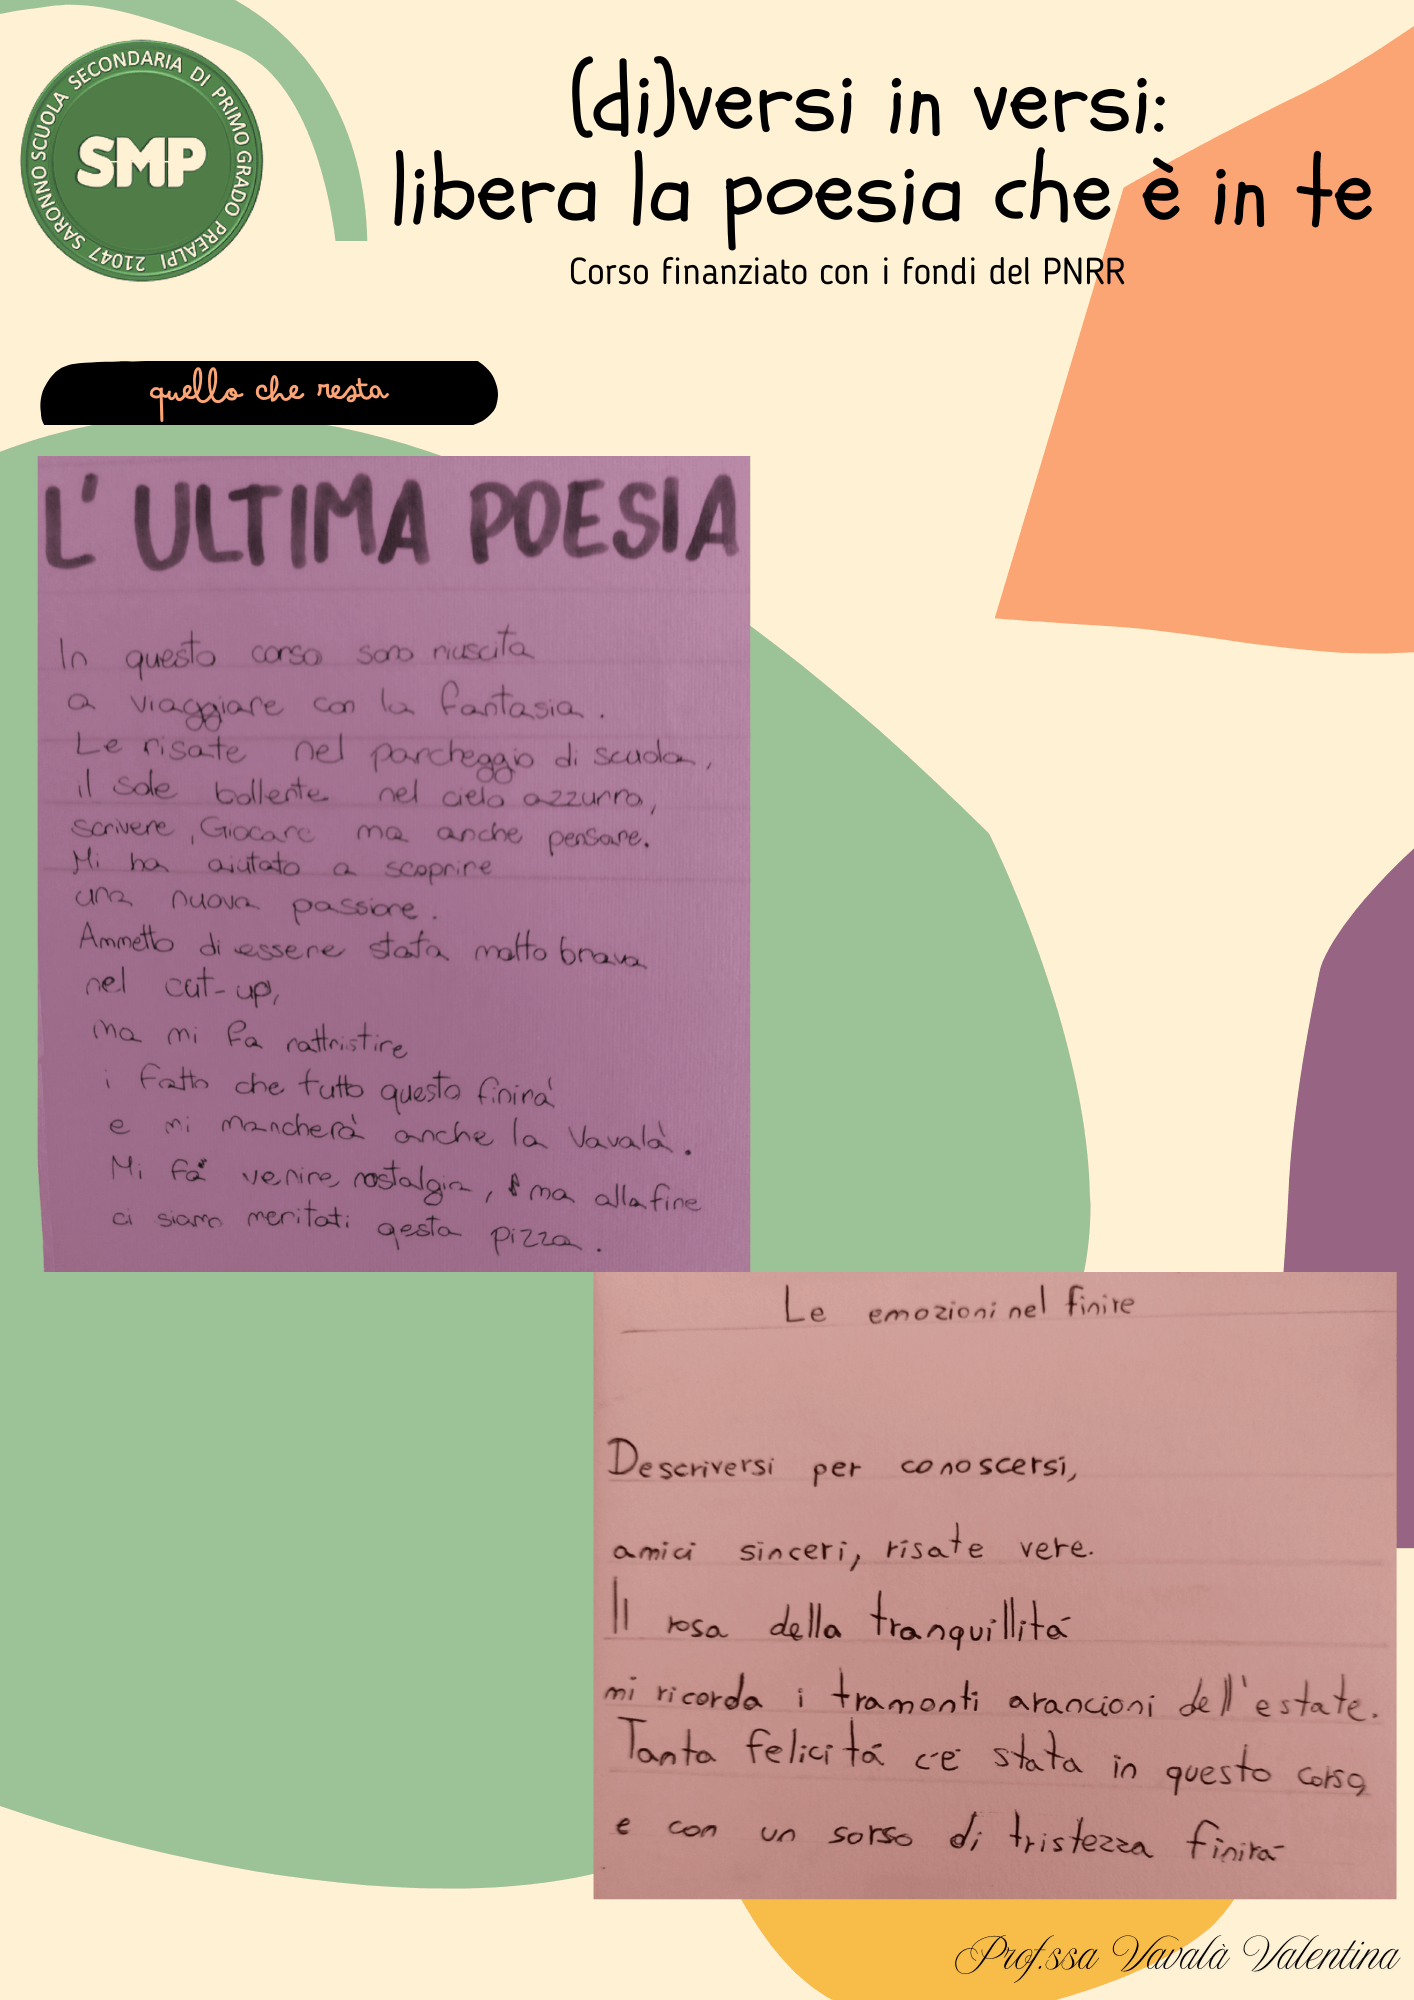 SARONNO SCUOLA SECONDARIA DI PRIMO GRADO PREALPI 21047
SMP
(di)versi in versi:
libera la poesia che è in te
Corso finanziato con i fondi del PNRR
quello che resta
L' ULTIMA POESIA
In questo corso sono riuscita
a viaggiare con la fantasia.
Le risate nel parcheggio di scuola,
il sole bollente nel cielo azzurro,
scrivere, Giocare ma anche pensare.
Mi ha aiutato a scoprire
una nuova passione.
Ammetto di essere stata molto brava
nel cut-up,
ma mi fa rattristire
i fatto che tutto questo finirà
e mi mancherà anche la Vavalà.
Mi fa venire nostalgia, ma alla fine
ci siamo meritati qesta pizza.
Le emozioni nel finire
Descriversi per conoscersi,
amici sinceri, risate vere.
Il rosa della tranquillitá
mi ricorda i tramonti arancioni dell'estate.
Tanta felicitá c'é stata in questo corso,
e con un sorso di tristezza finirá
Prof.ssa Vavalà Valentina